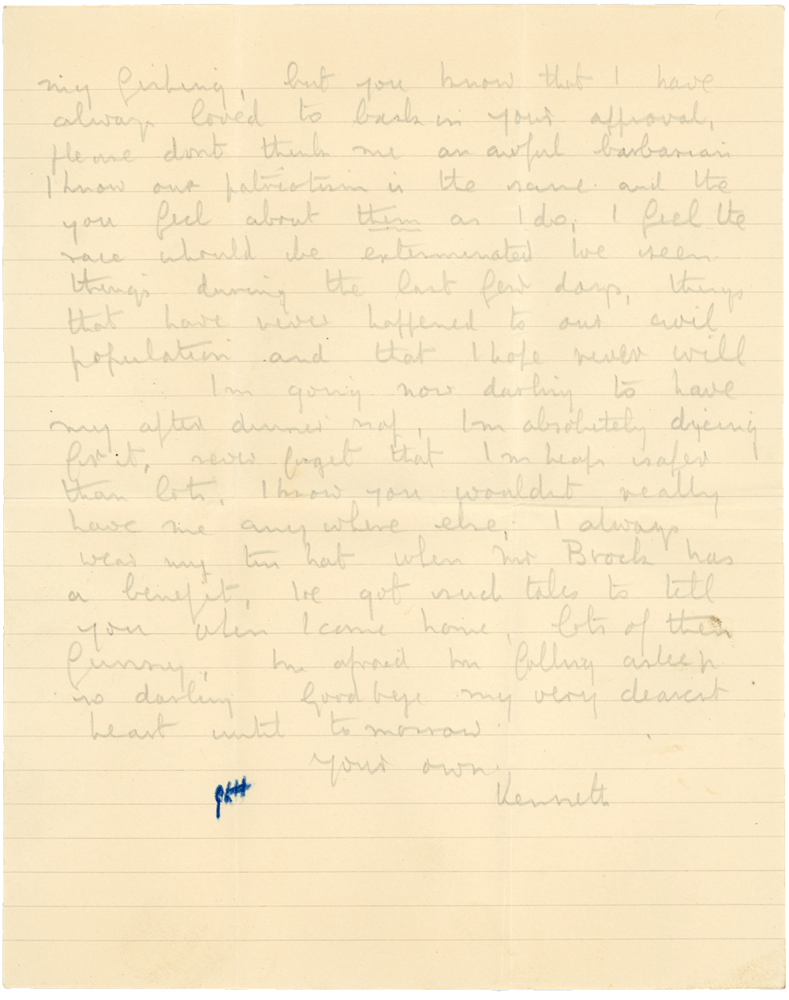 my fishing, but you know that I have
always loved to bask in your approval,
please dont think me an awful barbarian
I know our patriotism is the same and the
you feel about them as I do, I feel the
race should be exterminated Ive seen
things during the last few days, things
that have never happened to our civil
population and that I hope never will
Im going now darling to have
my after dinner nap, Im absolutely dyeing
for it, never forget that Im heaps safer
than lots, I know you wouldnt really
have me any where else, I always
wear my tin hat when Mr Brock has
a benefit, Ive got such tales to tell
you when I come home, lots of them
funny, Im afraid Im falling asleep
so darling Goodbye my very dearest
heart until tomorrow.
Your own.
Kenneth